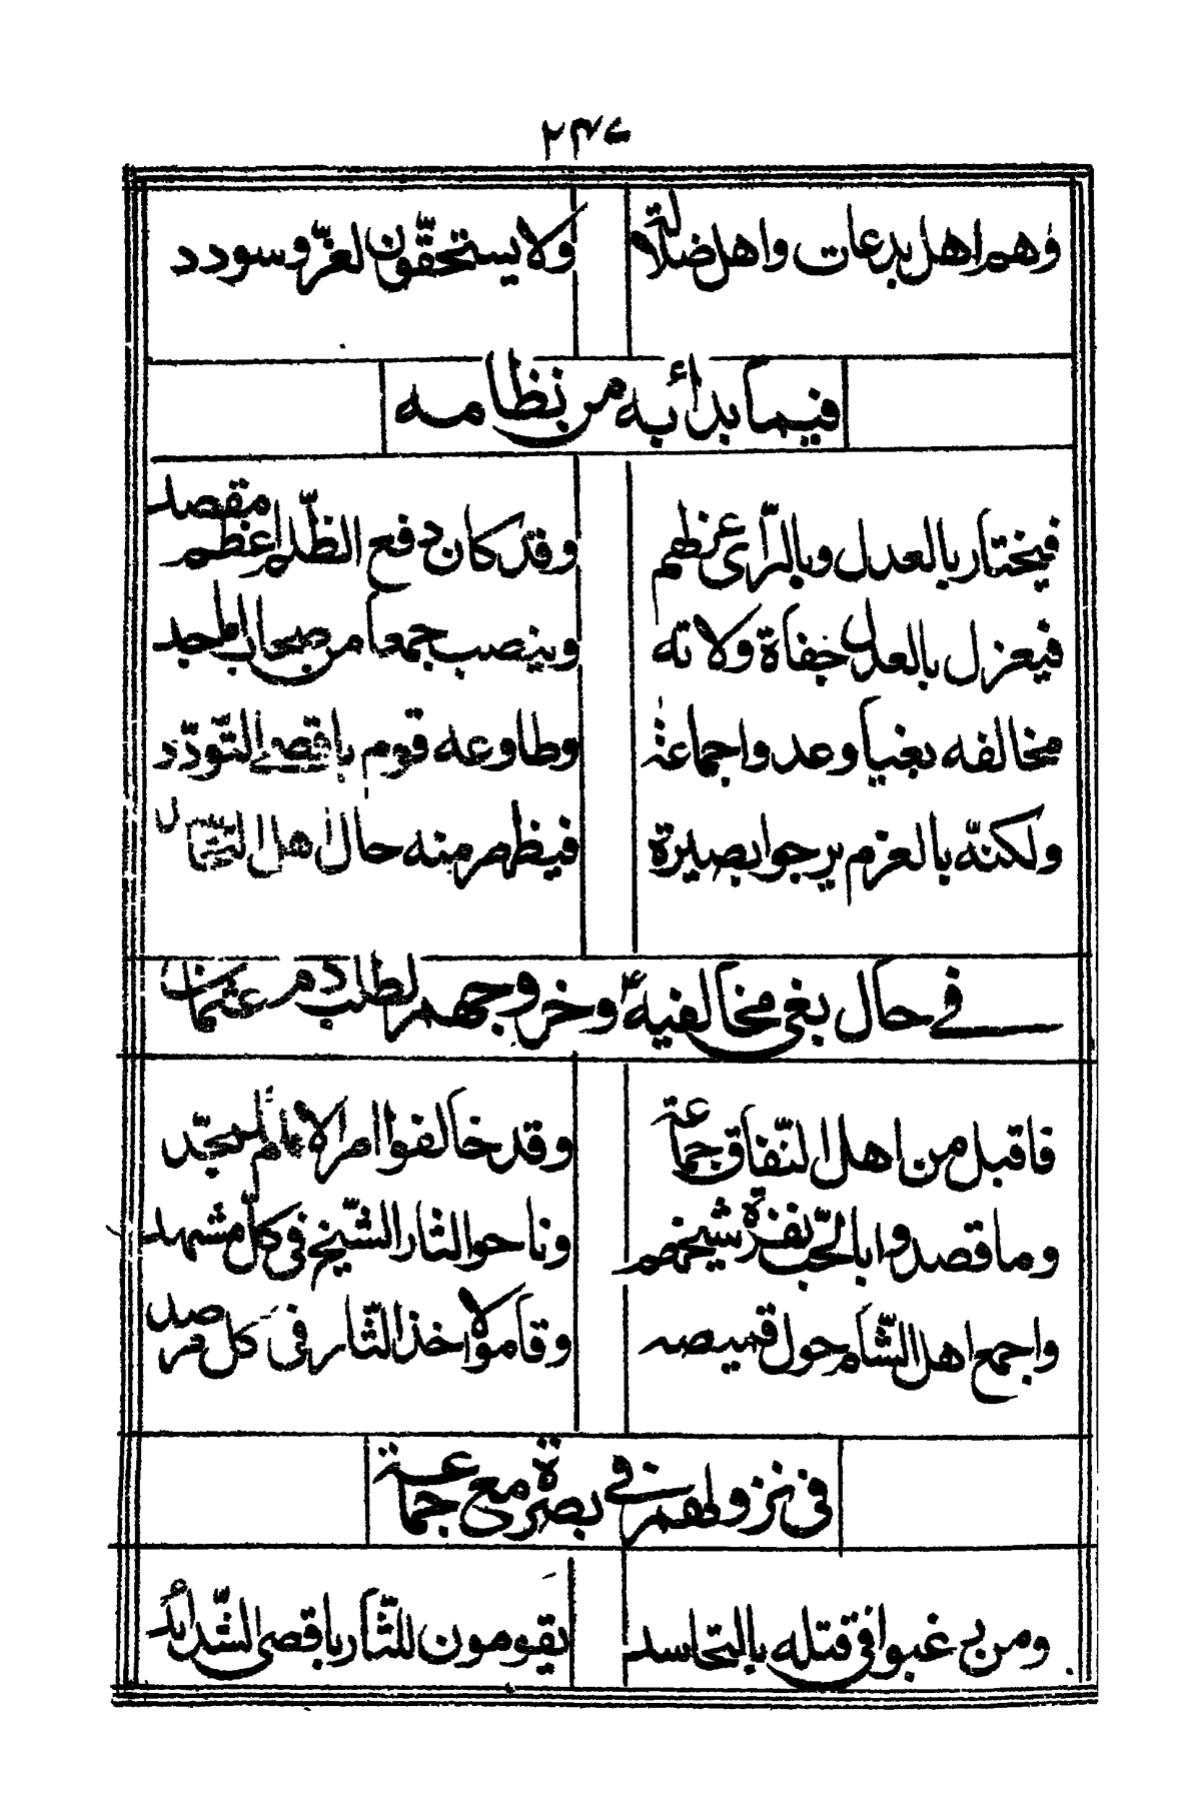 ٢٣٧
وهم اهل بدعات واهل ضلالة ولا يستحقّون لعزّ وسودد
فيما بدأ به من نظامه
فيختار بالعدل وبالرّاى عزظهم وقد كان دفع الظّلم اعظم مقصد
فيعزل بالعدل جفاة ولاته وينصب جمعا من صحاب
مخالفه بغيا وعدوا جماعة وطاوعه قوم باقصى التّودّد
ولكنّه بالعزم يرجوا بصيرة فيظهر منه حال اهل
فى حال بغى مخالفيه وخروجهم لطلب دم عثمان
فاقبل من اهل النّفاق جماعة وقد خالفوا امر الامام
وما قصدوا بالحّب نفرة شيخهم وناحوا لثار الشّيخ فى كلّ مشهد
واجمع اهل الشّام حول قميصه وقاموا لاخذ الثّار فى كل مرصد
فى نزولهم فى بصرة مع جماعة
ومن رغبوا فى قتله بالتحاسد يقومون للثّار باقصى الشّدائد